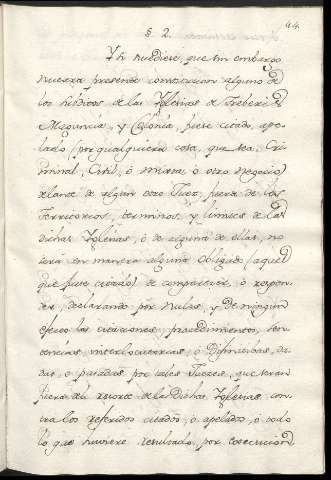 44
§ 2.
Y si sucediere, que sin embargo
nuestra presente constitucion alguno de
los subditos de las Yglesias de Treberis
Magunsia, y Colonia, fuere citado, ape-
lado (por qualquiera cosa, que sea, Cri-
minal, Civil, ó mixta ó otro negocio)
delante de algun otro Juez, fuera de los
Territorios, terminos, y limites de las
dichas Yglesias, ó de alguna de ellas, no
será en manera alguna obligado (aquel
que fuere citado) de comparecer, ó respon-
der, declarando por nulas, y de ningun
efecto las citaciones, procedimientos, sen-
tencias, interlocutorias, ó Difinitibas, da-
das, ó pasadas por tales Jueces, que seran
fuera del resorte de las Dichas Yglesias, con-
tra los referidos citados, ó apelados, ó todo
lo que huviere resultado, por execucion